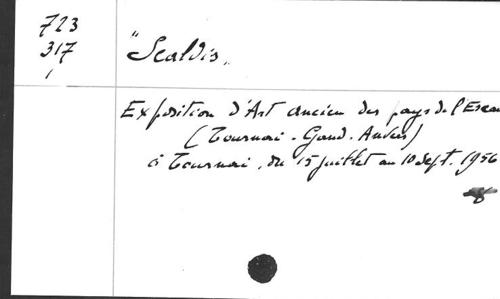 723
317
1
"Scaldis,
Exposition d'Art ancien des pays de l'Escau
(Tournai - Gand - Anvers)
à Tournai, du 15 juillet au 10 sept. 1956